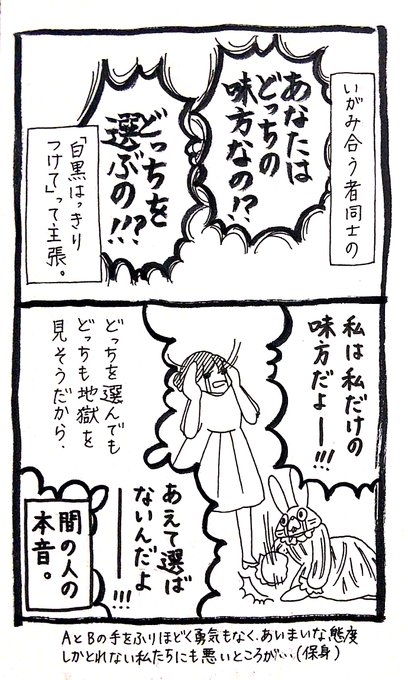 いがみ合う者同士の
あなたは
どっちの
味方なの!?
どっちを
選ぶの!!?
「白黒はっきり
つけて」って主張。
私は私だけの
味方だよ――!!!
あえて選ば
ないんだよ
――!!!
どっちを選んでも
どっちも地獄を
見そうだから、
間の人の
本音。
AとBの手をふりほどく勇気もなく、あいまいな態度
しかとれない私たちにも悪いところが…(保身)